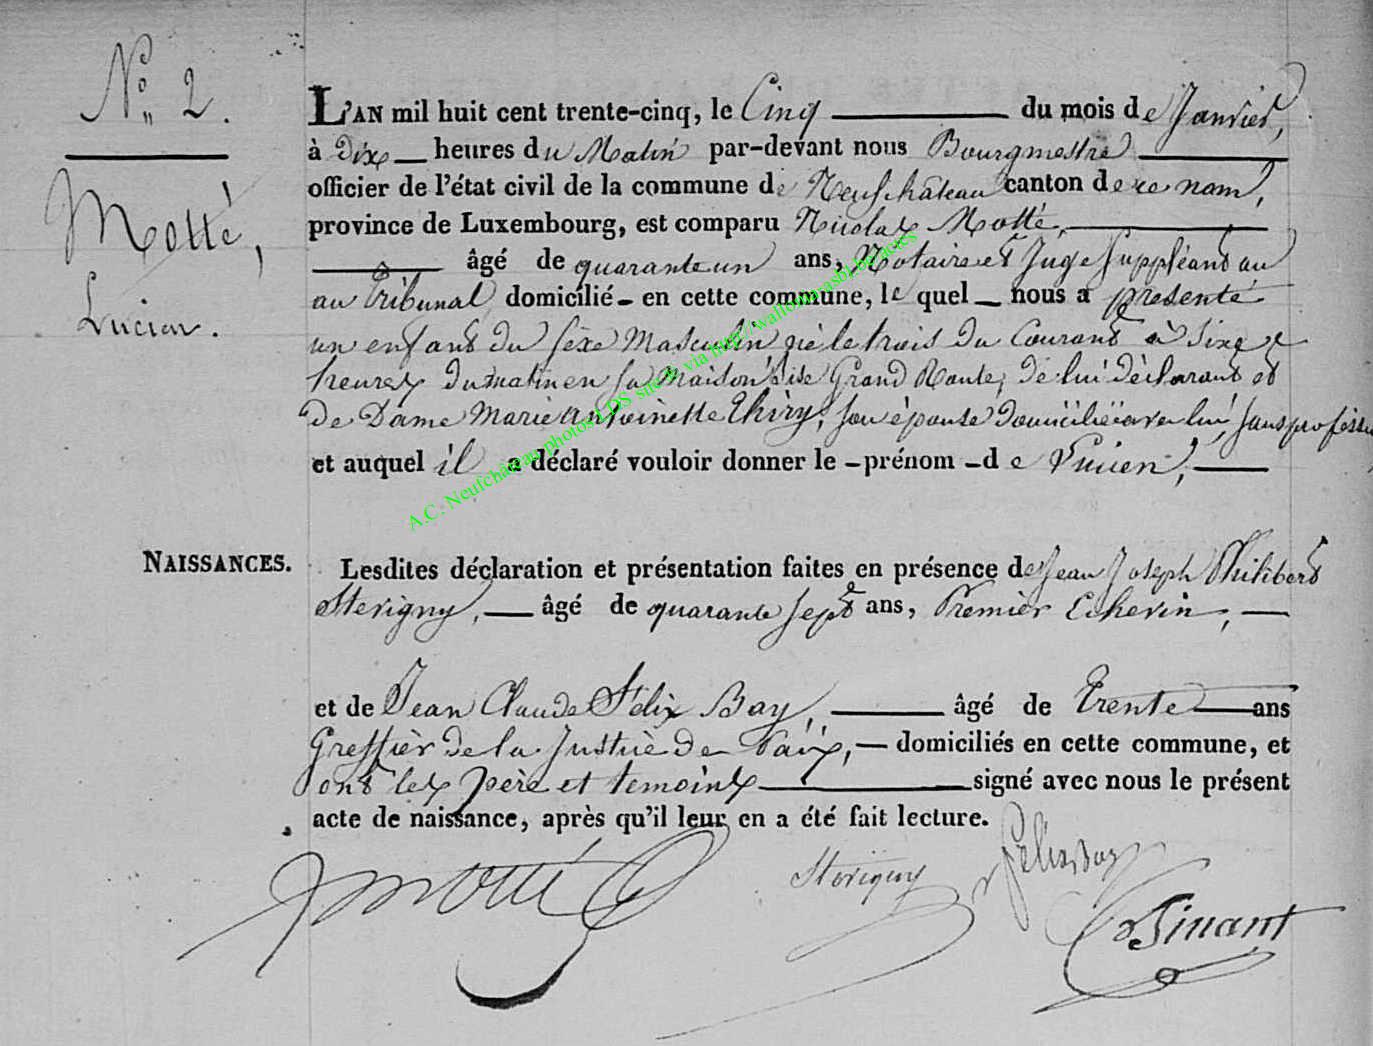 N° 2.
Motté,
Lucien.
L'AN mil huit cent trente-cinq, le Cinq du mois de Janvier,
à dix heures du Matin par-devant nous Bourgmestre
officier de l'état civil de la commune de Neufchâteau canton de ce nom,
province de Luxembourg, est comparu Nicolas Motté,
âgé de quarante un ans, Notaire et Juge Suppléant au
au Tribunal domicilié en cette commune, lequel nous a présenté
un enfant du sèxe Masculin né le trois du Courant à Six
heures du matin en sa maison sise Grand Route, de lui déclarant et
de Dame Marie Antoinette Thiry, son épouse domiciliée avec lui, sans profession
et auquel il a déclaré vouloir donner le prénom de Lucien,
NAISSANCES.
Lesdites déclaration et présentation faites en présence de Jean Joseph Philibert
Stevigny, âgé de quarante sept ans, Premier Echevin,
et de Jean Claude Félix Bay, âgé de Trente ans
Greffier de la Justice de Paix, domiciliés en cette commune, et
ont les père et temoins signé avec nous le présent
acte de naissance, après qu'il leur en a été fait lecture.
Motté
Stevigny
Félix Bay
A.C. Neufchâteau photos LDS site B via http://wallonia-asbl.be/actes